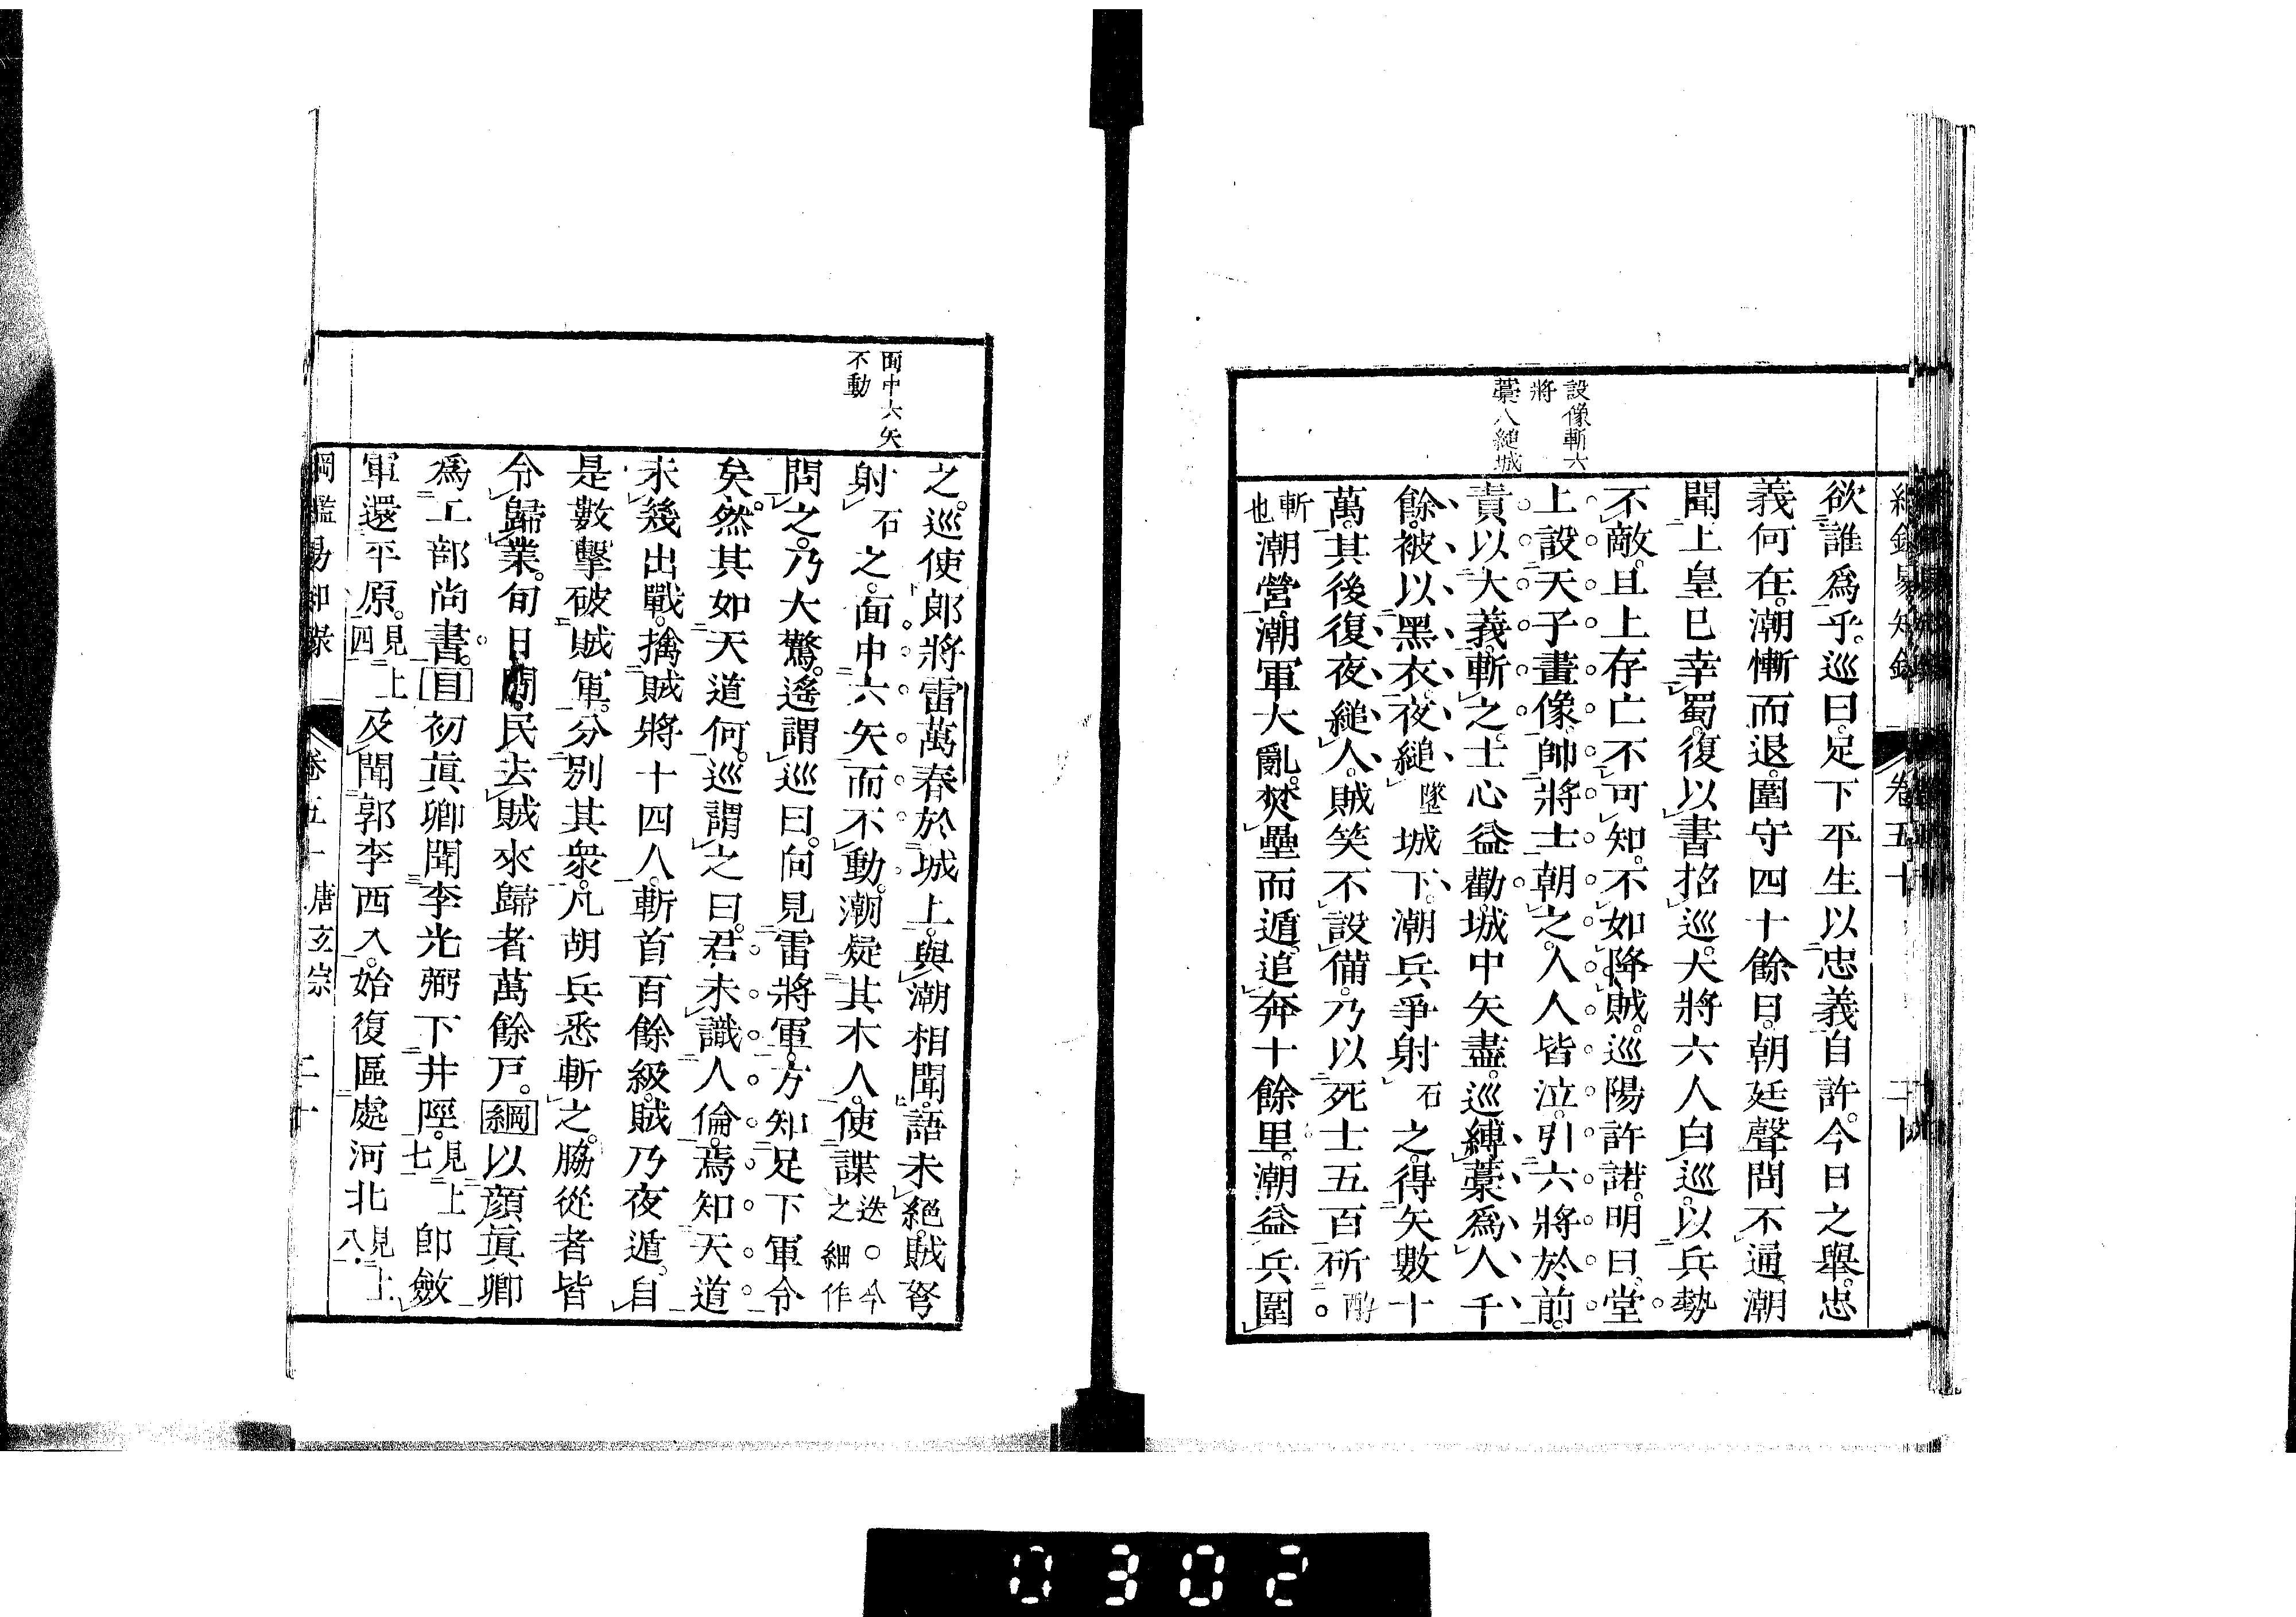 設像斬六
將
藁人縋城
欲誰爲乎。巡曰。足下平生以忠義自許。今日之舉。忠
義何在。潮慚而退。圍守四十餘日。朝廷聲問不通。潮
聞上皇已幸蜀。復以書招巡。大將六人白巡。以兵勢
不敵。且上存亡不可知。不如降賊。巡陽許諾。明日。堂
上設天子畫像。帥將士朝之。人人皆泣。引六將於前。
責以大義。斬之。士心益勸。城中矢盡。巡縛藁爲人千
餘。被以黑衣。夜縋墜城下。潮兵爭射石之。得矢數十
萬。其後復夜縋人。賊笑不設備。乃以死士五百斫酌。
斬也潮營。潮軍大亂。焚壘而遁。追奔十餘里。潮益兵圍
卷五十
面中六矢
不動
之。巡使郎將雷萬春於城上。與潮相聞。語未絕。賊弩
射石之。面中六矢而不動。潮疑其木人。使諜迭○今之細作
問之。乃大驚。遙謂巡曰。向見雷將軍。方知足下軍令
矣。然其如天道何。巡謂之曰。君未識人倫。焉知天道
未幾出戰。擒賊將十四人。斬首百餘級。賊乃夜遁。自
是數擊破賊軍。分別其衆。凡胡兵悉斬之。脇從者皆
令歸業。旬日間。民去賊來歸者萬餘戸。綱以顏眞卿
爲工部尚書。目初眞卿聞李光弼下井陘。見上七即斂
軍還平原。見上四及聞郭李西入。始復區處河北見上八
綱鑑易知录 卷五十 唐玄宗 二十